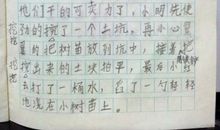 他们干的可卖力了，小明先使
劲的挖了一个土坑，再小心翼
翼的把树苗放到坑中，接着把
挖出来的土块拍平，最后小红
去打了一桶水，舀了一勺轻轻
地浇在小树苗上。